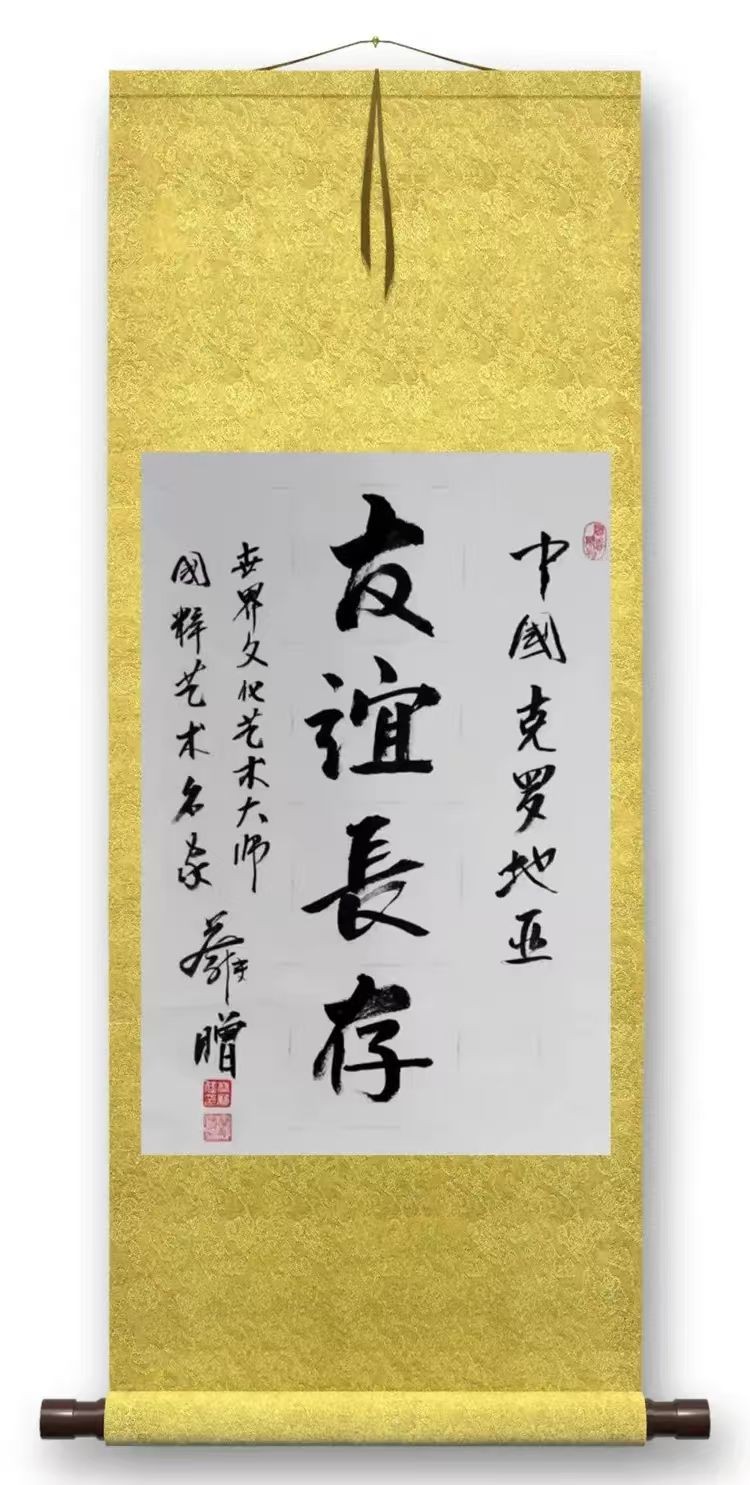 中國克罗地亚
友誼長存
世界文化艺术大师
國粹艺术名家
赠